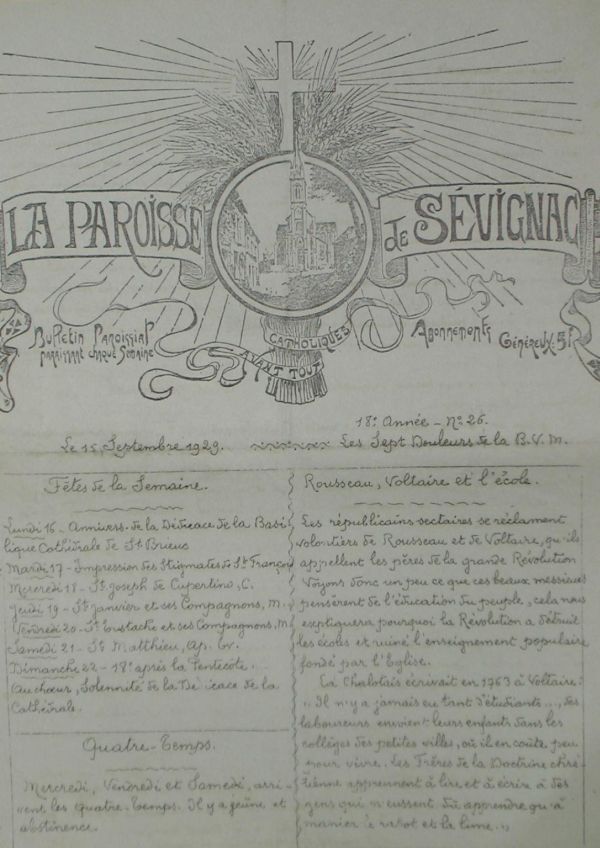 LA PAROISSE de SÉVIGNAC
Bulletin Paroissial
paraissant chaque Semaine
CATHOLIQUES
AVANT TOUT
Abonnements
Généreux: 5f
18e Année - No 26.
Le 15, Septembre 1929. Les Sept Douleurs de la B.V.M.
Fêtes de la Semaine.
Lundi 16 - Annivers. de la Dédicace de la Basi
lique Cathédrale de St Brieuc
Mardi 17 - Impression des Stigmates de St François
Mercredi 18 - St Joseph de Cupertino, C.
Jeudi 19 - St Janvier et ses Compagnons, M.
Vendredi 20 - St Eustache et ses Compagnons, M
Samedi 21 - St Matthieu, Ap. Ev.
Dimanche 22 - 18e après la Pentecôte.
Au chœur, Solennité de la Dé icace de la
Cathédrale.
Quatre-Temps.
Mercredi, Vendredi et Samedi, arri-
vent les Quatre-Temps. Il y a jeûne et
abstinence.
Rousseau, Voltaire et l'école.
Les républicains sectaires se réclament
volontiers de Rousseau et de Voltaire, qu'ils
appellent les pères de la grande Révolution
Voyons donc un peu ce que ces beaux messieurs
pensèrent de l'éducation du peuple, cela nous
expliquera pourquoi la Révolution a détruit
les écoles et ruiné l'enseignement populaire
fondé par l'Eglise.
La Chalotais écrivait en 1963 à Voltaire:
"Il n'y a jamais eu tant d'étudiants..., des
laboureurs envoient leurs enfants dans les
collèges des petites villes, où il en coûte peu
pour vivre. Les Frères de la Doctrine chré-
tienne apprennent à lire et à écrire à des
gens qui n'eussent dû apprendre qu'à
manier le rabot et la lime."